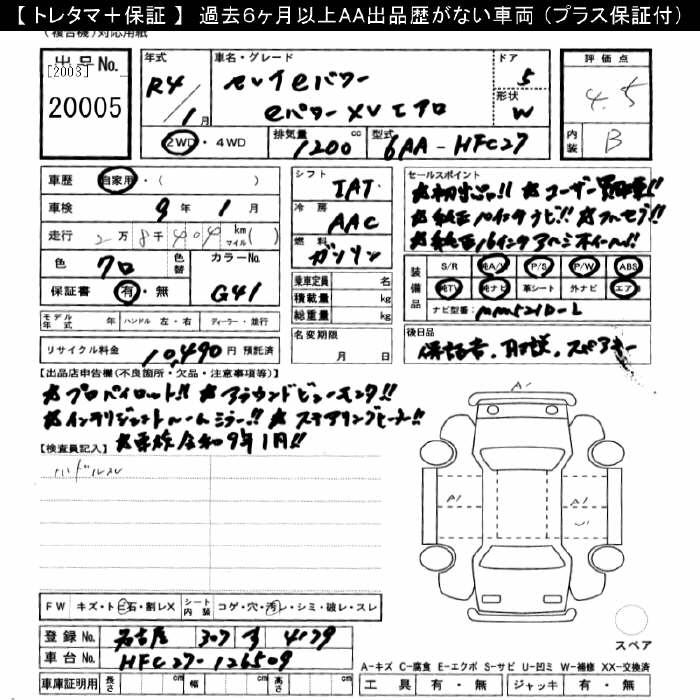 【 トレタマ＋保証 】 過去６ヶ月以上ＡＡ出品歴がない車両 （プラス保証付）
(複合機)対応用紙
出品No.
[2003]
20005
年式
R4/1月
車名・グレード
セレナeパワー
eパワーXVエアロ
ドア
5
形状
W
評価点
4.5
内装
B
2WD・4WD
排気量
1200cc
型式
6AA-HFC27
車歴
自家用・( )
車検
9年1月
走行
2万8千404 kmマイル( )
色
クロ
色替
カラーNo.
G41
保証書
有・無
シフト
IAT
冷房
AAC
燃料
ガソリン
乗車定員 名
積載量 kg
総重量 kg
セールスポイント
★初出品!! ★ユーザー買取車!!
★純正10インチナビ!! ★フルセグ!!
★純正16インチアルミホイール!!
装備品
S/R 純A/V P/S P/W ABS
純TV 純ナビ 革シート 外ナビ エアB
ナビ型番: MM521D-L
モデル年式 年 ハンドル 左・右 ディーラー・並行
リサイクル料金 10,490円 預託済
名変期限
月 日
後日品
保証書、取説、スペアキー
【出品店申告欄(不良箇所・欠品・注意事項等)】
★プロパイロット!! ★アラウンドビューモニタ!!
★インテリジェントルームミラー!! ★ステアリングヒーター!!
★車検令和9年1月!!
【検査員記入】
ハンドルスレ
A1
A1
A1
U1
FW キズ・トビ石・割レX シート内装 コゲ・穴・汚レ・シミ・破レ・スレ
登録No. 名古屋 307 4179
車台No. HFC27-126509
車庫証明用 長さ cm 幅 cm 高さ cm
スペア
A-キズ C-腐食 E-エクボ S-サビ U-凹ミ W-補修 XX-交換済
工具 有・無 ジャッキ 有・無